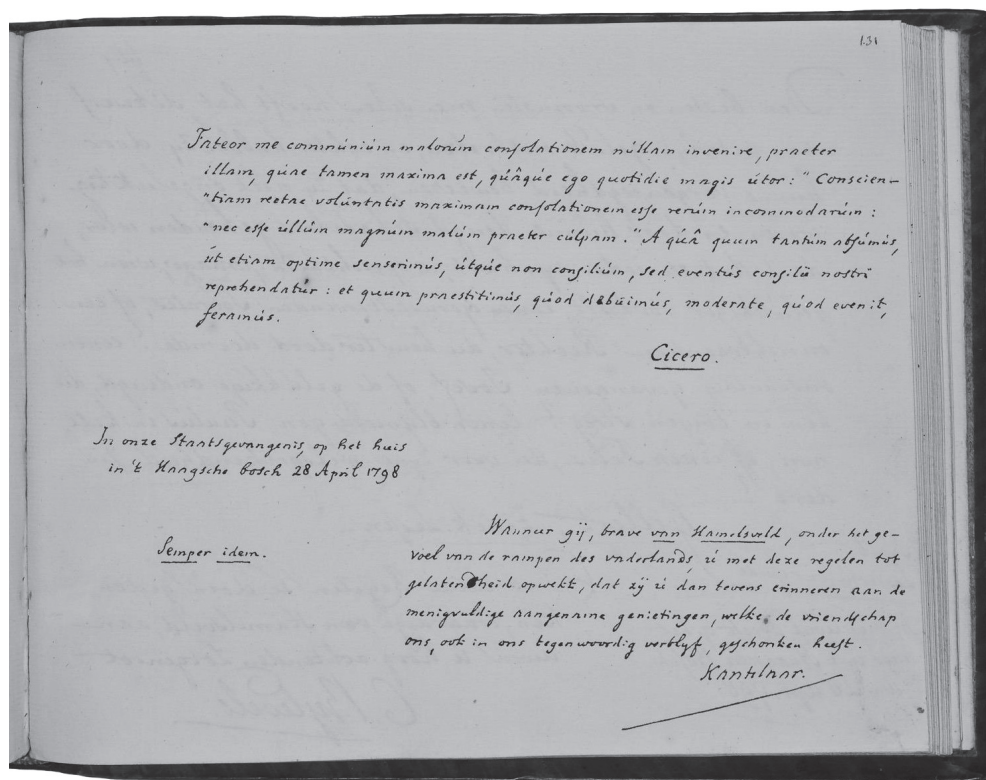 131
Fateor me communium malorum consolationem nullam invenire, praeter
illam, quae tamen maxima est, quâque ego quotidie magis utor: "Conscien-
"tiam rectae voluntatis maximam consolationem esse rerum incommodarum:
"nec esse ullum magnum malum praeter culpam." A quâ quum tantum absumus,
ut etiam optime senserimus, utque non consilium, sed eventus consilii nostri
reprehendatur: et quum praestitimus, quod debuimus, moderate, quod evenit,
feramus.
Cicero.
In onze Staatsgevangenis, op het huis
in 't Haagsche bosch 28 April 1798
Semper idem.
Wanneer gij, brave van Hamelsveld, onder het ge-
voel van de rampen des vaderlands, u met deze regelen tot
gelatenheid opwekt, dat zij u dan tevens erinneren aan de
menigvuldige aangename genietingen, welke de vriendschap
ons, ook in ons tegenwoordig verblyf, geschonken heeft.
Kantelaar.